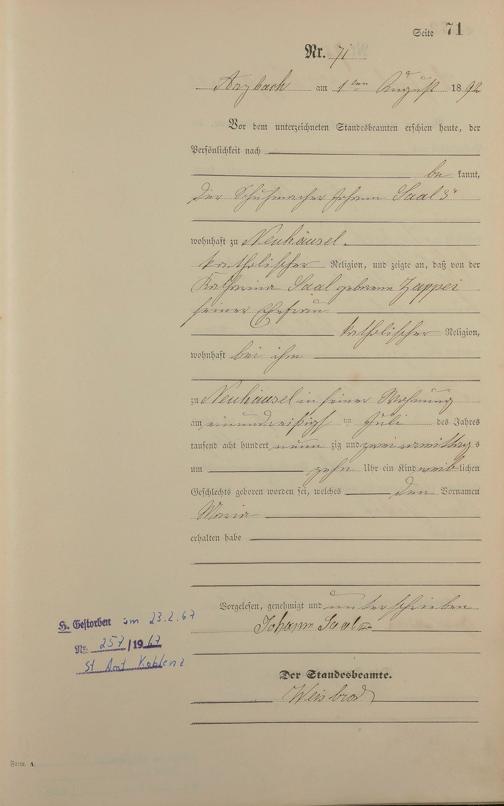 Seite 71
Nr. 71
Arzbach am 1ten August 1892
Vor dem unterzeichneten Standesbeamten erschien heute, der
Persönlichkeit nach
be kannt,
der Schuhmacher Johann Saal 3r
wohnhaft zu Neuhäusel.
katholischer Religion, und zeigte an, daß von der
Katharina Saal geborene Zappei
seiner Ehefrau
katholischer Religion,
wohnhaft bei ihm
zu Neuhäusel in seiner Wohnung
am einunddreißigst en Juli des Jahres
tausend acht hundert neun zig und zwei vormittags
um zehn Uhr ein Kind weiblichen
Geschlechts geboren worden sei, welches den Vornamen
Maria
erhalten habe
Vorgelesen, genehmigt und unterschrieben
Johann Saal
H. Gestorben am 23.2.67
Nr. 257/1967
St Amt Koblenz
Der Standesbeamte.
Weisbrod
Form. A.